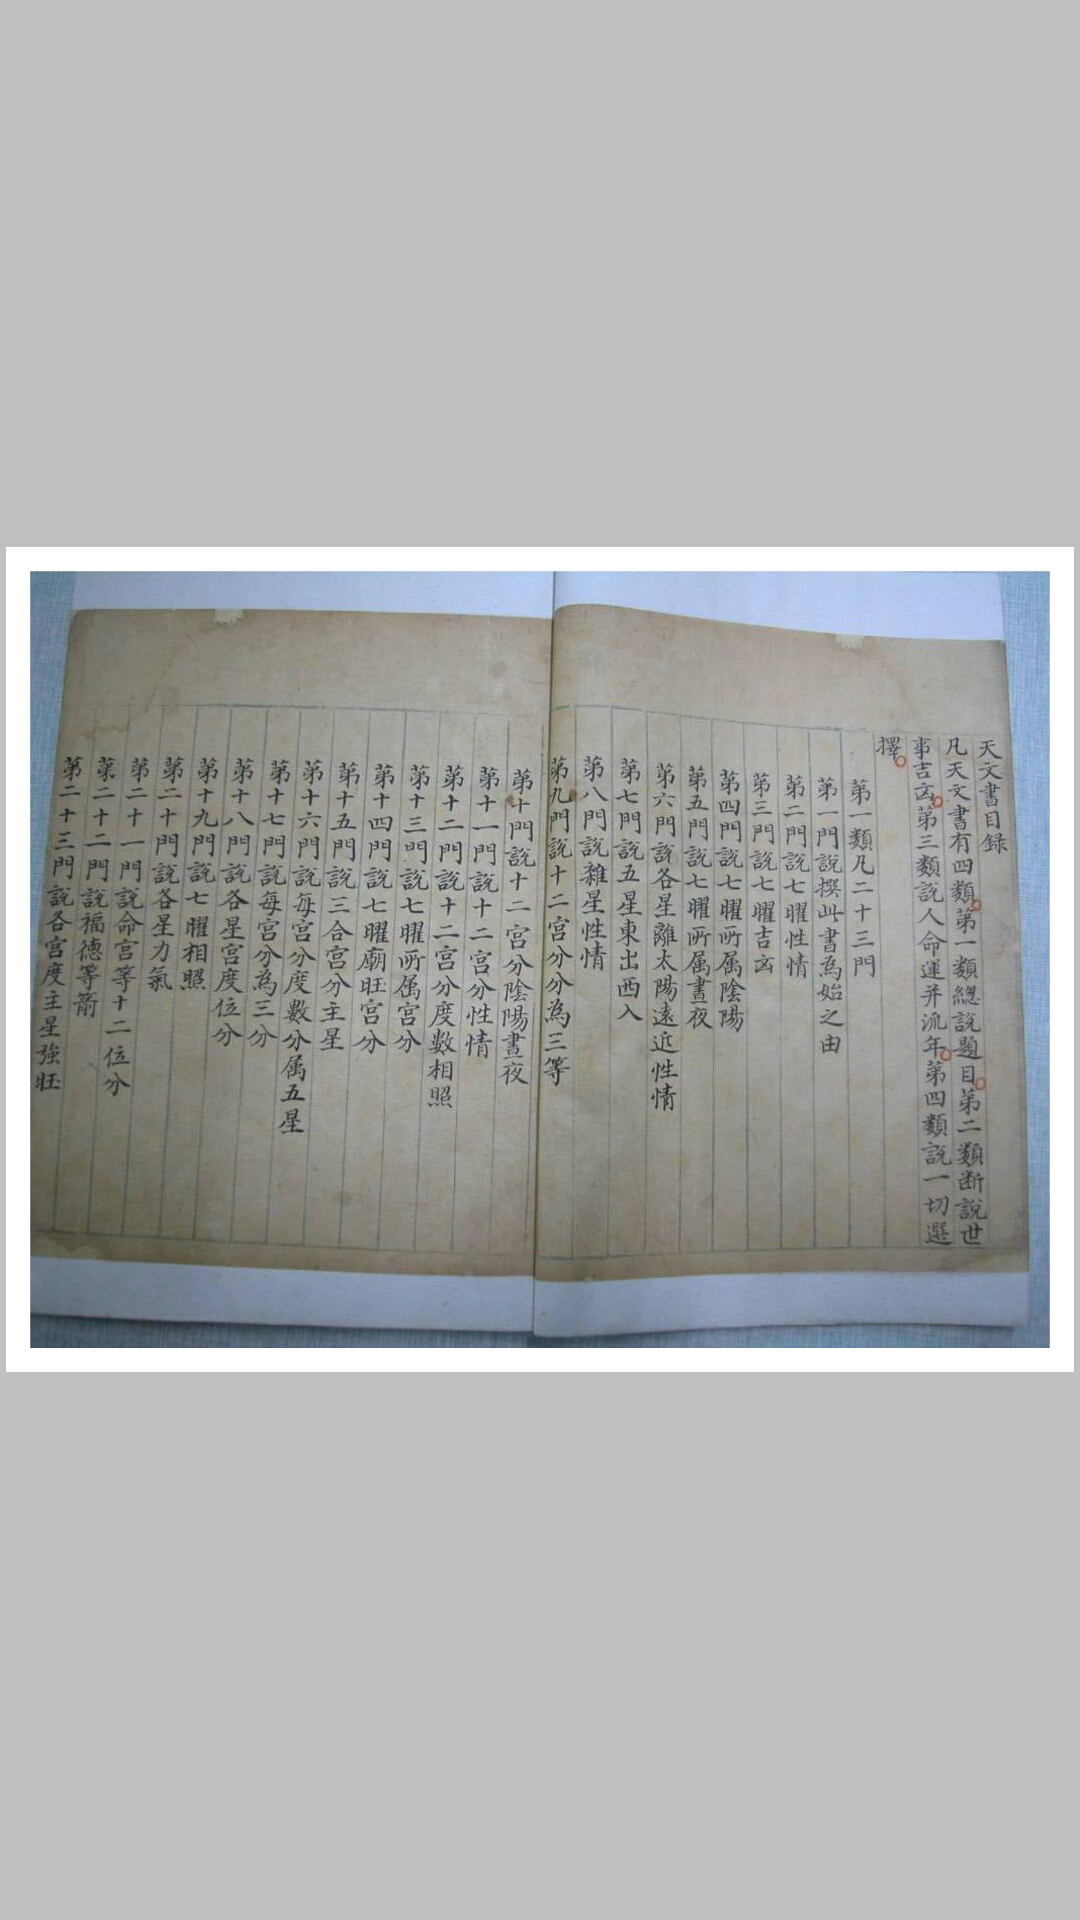 天文書目録
凡天文書有四類第一類總說題目第二類断說世
事吉凶第三類說人命運并流年第四類說一切選
擇
第一類凡二十三門
第一門說撰此書為始之由
第二門說七曜性情
第三門說七曜吉凶
第四門說七曜所属陰陽
第五門說七曜所属晝夜
第六門說各星離太陽遠近性情
第七門說五星東出西入
第八門說雜星性情
第九門說十二宮分分為三等
第十門說十二宮分陰陽晝夜
第十一門說十二宮分性情
第十二門說十二宮分度數相照
第十三門說七曜所属宮分
第十四門說七曜廟旺宮分
第十五門說三合宮分主星
第十六門說每宮分度數分属五星
第十七門說每宮分為三分
第十八門說各星宮度位分
第十九門說七曜相照
第二十門說各星力氣
第二十一門說命宮等十二位分
第二十二門說福德等箭
第二十三門說各宮度主星強旺